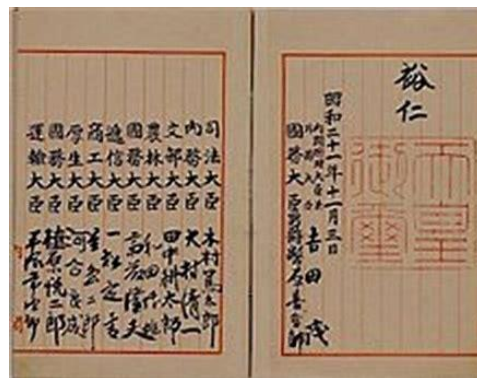 裕仁
天皇御璽
昭和二十一年十一月三日
吉田茂
國務大臣 男爵幣原喜重郎
司法大臣 木村篤太郎
内務大臣 大村清一
文部大臣 田中耕太郎
農林大臣 和田博雄
國務大臣 斎藤隆夫
遞信大臣 一松定吉
商工大臣 星島二郎
厚生大臣 河合良成
國務大臣 植原悦二郎
運輸大臣 平塚常次郎